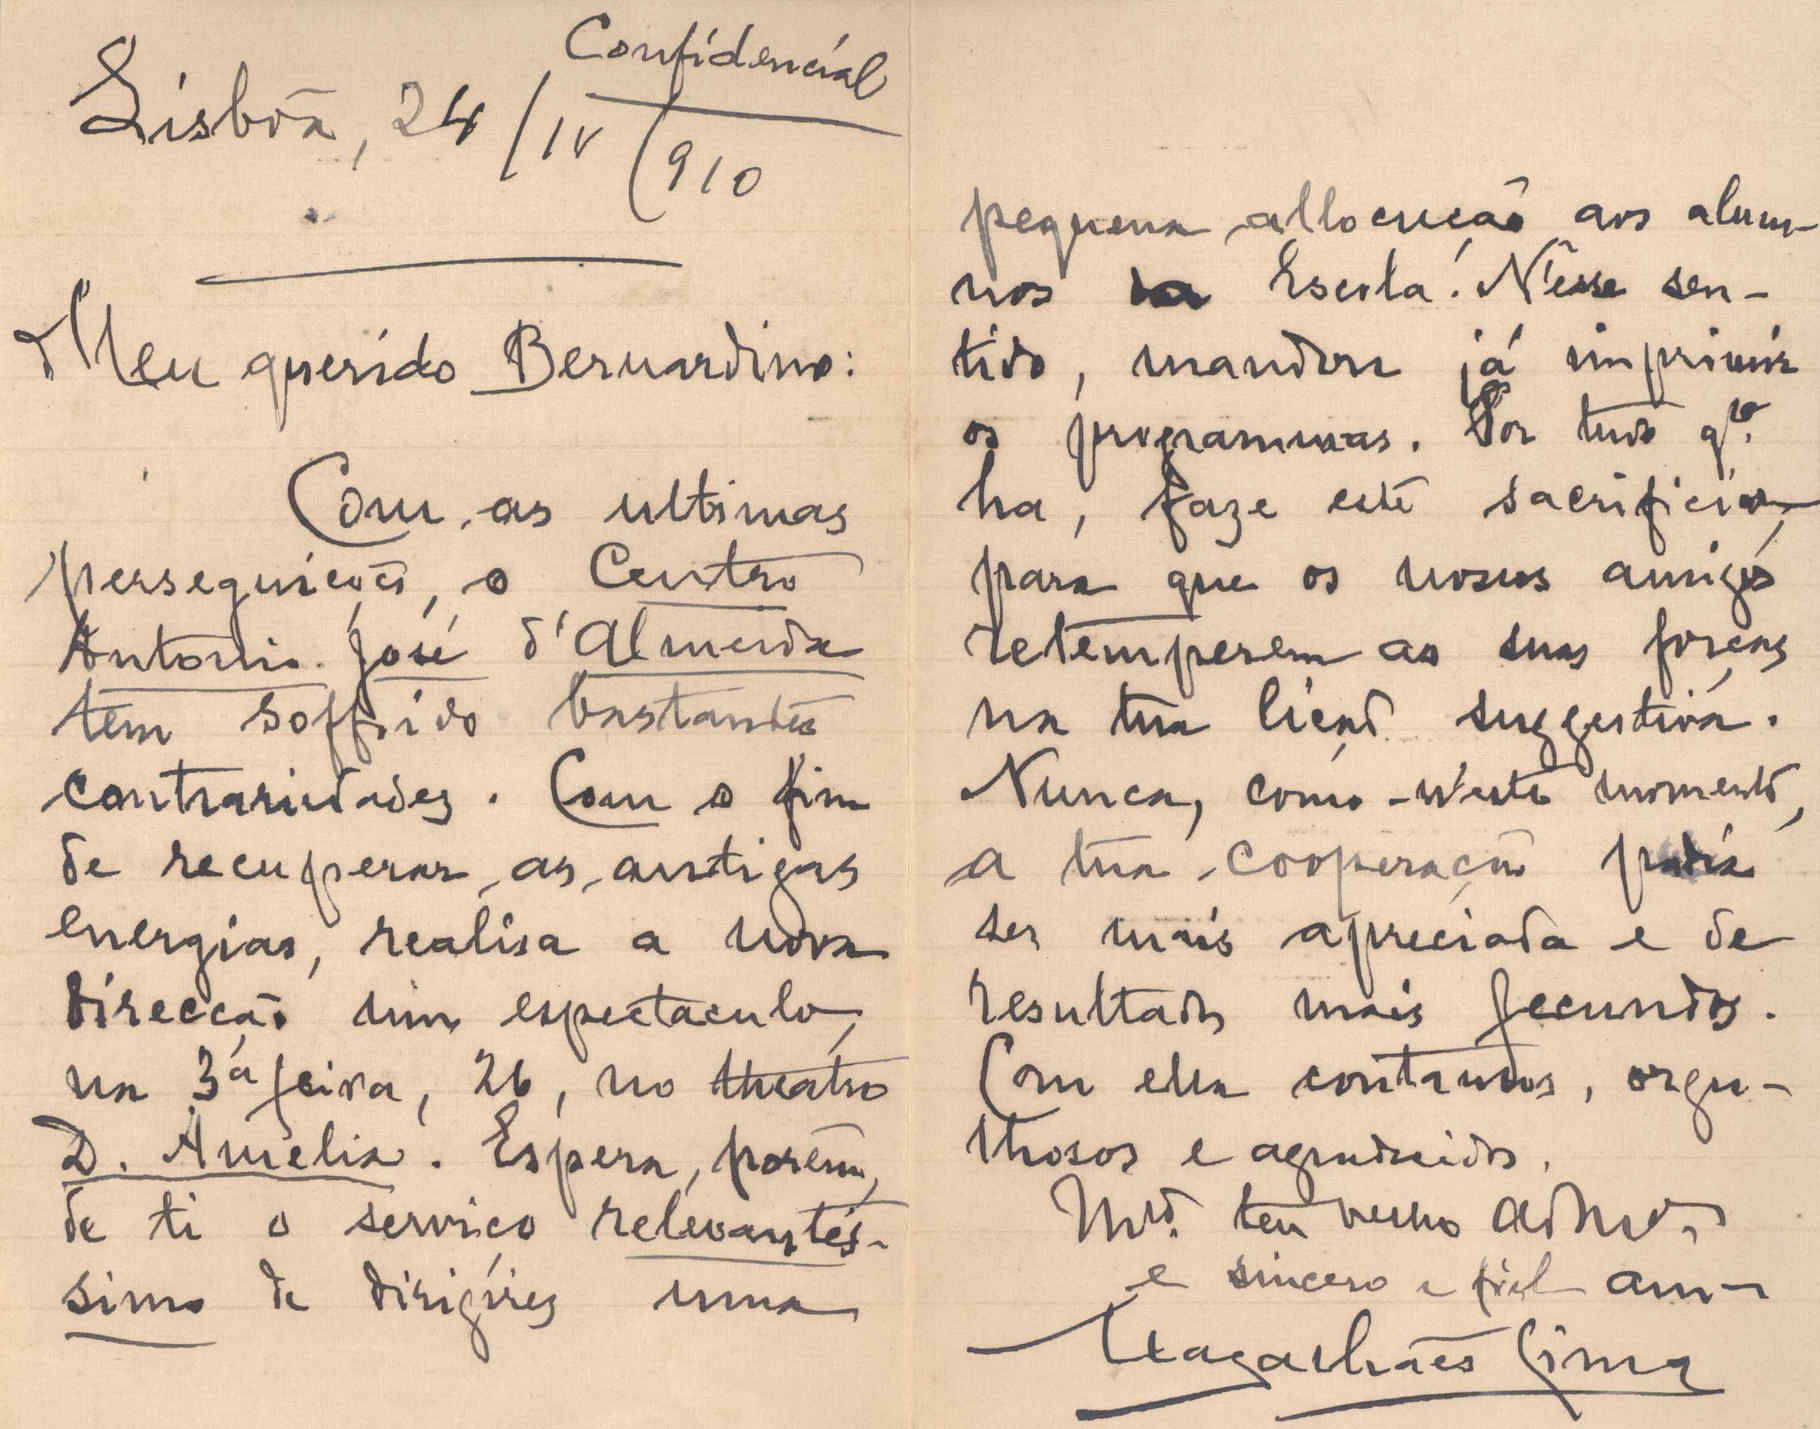 Confidencial
Lisbôa, 24/IV/910
Meu querido Bernardino:
Com as ultimas
perseguições, o Centro
Antonio José d'Almeida
tem soffrido bastantes
contrariedades. Com o fim
de recuperar as antigas
energias, realisa a nova
direcção um espectaculo,
na 3ª feira, 26, no theatro
D. Amelia. Espera, porêm,
de ti o serviço relevantis-
simo de dirigires uma
pequena allocução aos alum-
nos da Escola. N'esse sen-
tido, mandou já imprimir
os programmas. Por tudo q.to
ha, faze este sacrificio,
para que os nossos amigos
retemperem as suas forças
na tua lição suggestiva.
Nunca, como n'este momento,
a tua cooperação podia
ser mais apreciada e de
resultados mais fecundos.
Com ella contamos, orgu-
lhosos e agradecidos.
teu velho
e sincero e fiel am.
Magalhães Lima